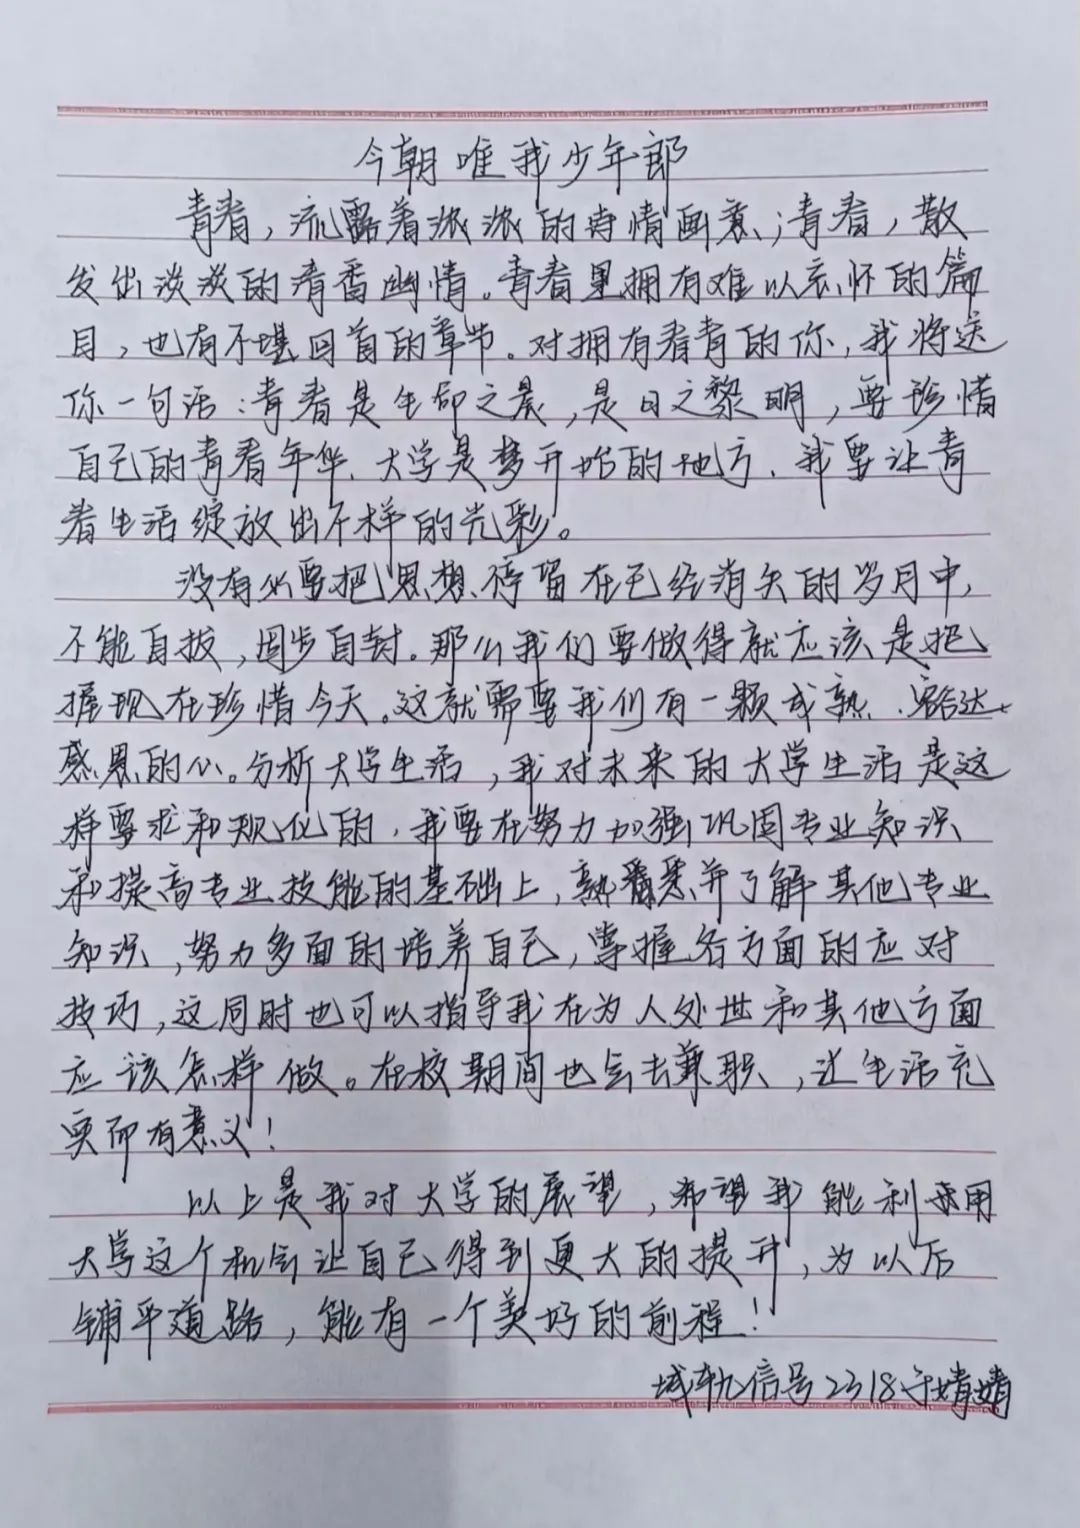 今朝唯我少年郎
青春，流露着浓浓的诗情画意；青春，散
发出淡淡的清香幽情。青春里拥有难以忘怀的篇
目，也有不堪回首的章节。对拥有春青的你，我将送
你一句话：青春是生命之晨，是日之黎明，要珍惜
自己的青春年华，大学是梦开始的地方，我要让青
春生活绽放出不样的光彩。
没有必要把思想停留在已经消失的岁月中，
不能自拔，固步自封。那么我们要做得就应该是把
握现在珍惜今天。这就需要我们有一颗成熟、豁达、
感恩的心。分析大学生活，我对未来的大学生活是这
样要求和规化的，我要在努力加强巩固专业知识
和提高专业技能的基础上，熟悉并了解其他专业
知识，努力多面的培养自己，掌握各方面的应对
技巧，这同时也可以指导我在为人处世和其他方面
应该怎样做。在校期间也会去兼职，让生活充
实而有意义！
以上是我对大学的展望，希望我能利用
大学这个机会让自己得到更大的提升，为以后
铺平道路，能有一个美好的前程！
城轨信号2318于婧婧